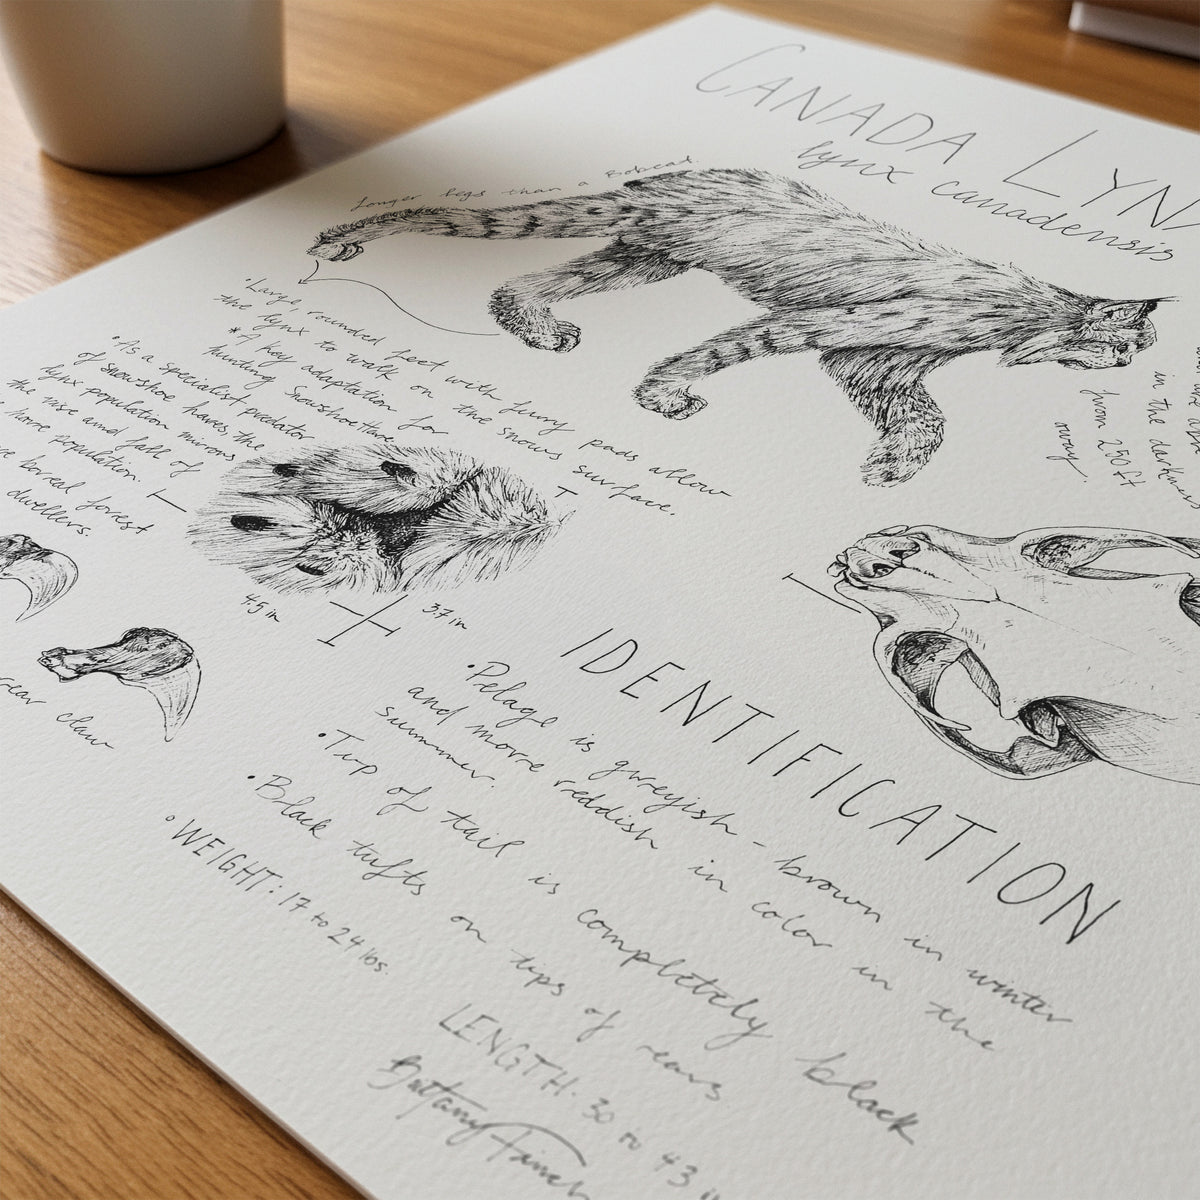 CANADA LYN
lynx canadensis
Longer legs than a Bobcat.
•Large, rounded feet with furry pads allow
the lynx to walk on the snows surface.
*A key adaptation for
hunting Snowshoe Hare
•As a specialist predator
of snowshoe hares, the
lynx population mirrors
the rise and fall of
hare population.
boreal forrest
dwellers.
in the darkness
from 250 ft
away
4.5 in
3.7 in
rear claw
IDENTIFICATION
•Pelage is greyish-brown in winter
and more reddish in color in the
summer.
•Tip of tail is completely black
•Black tufts on tips of ears
•WEIGHT: 17 to 24 lbs.
LENGTH: 30 to 43
Brittany Finch